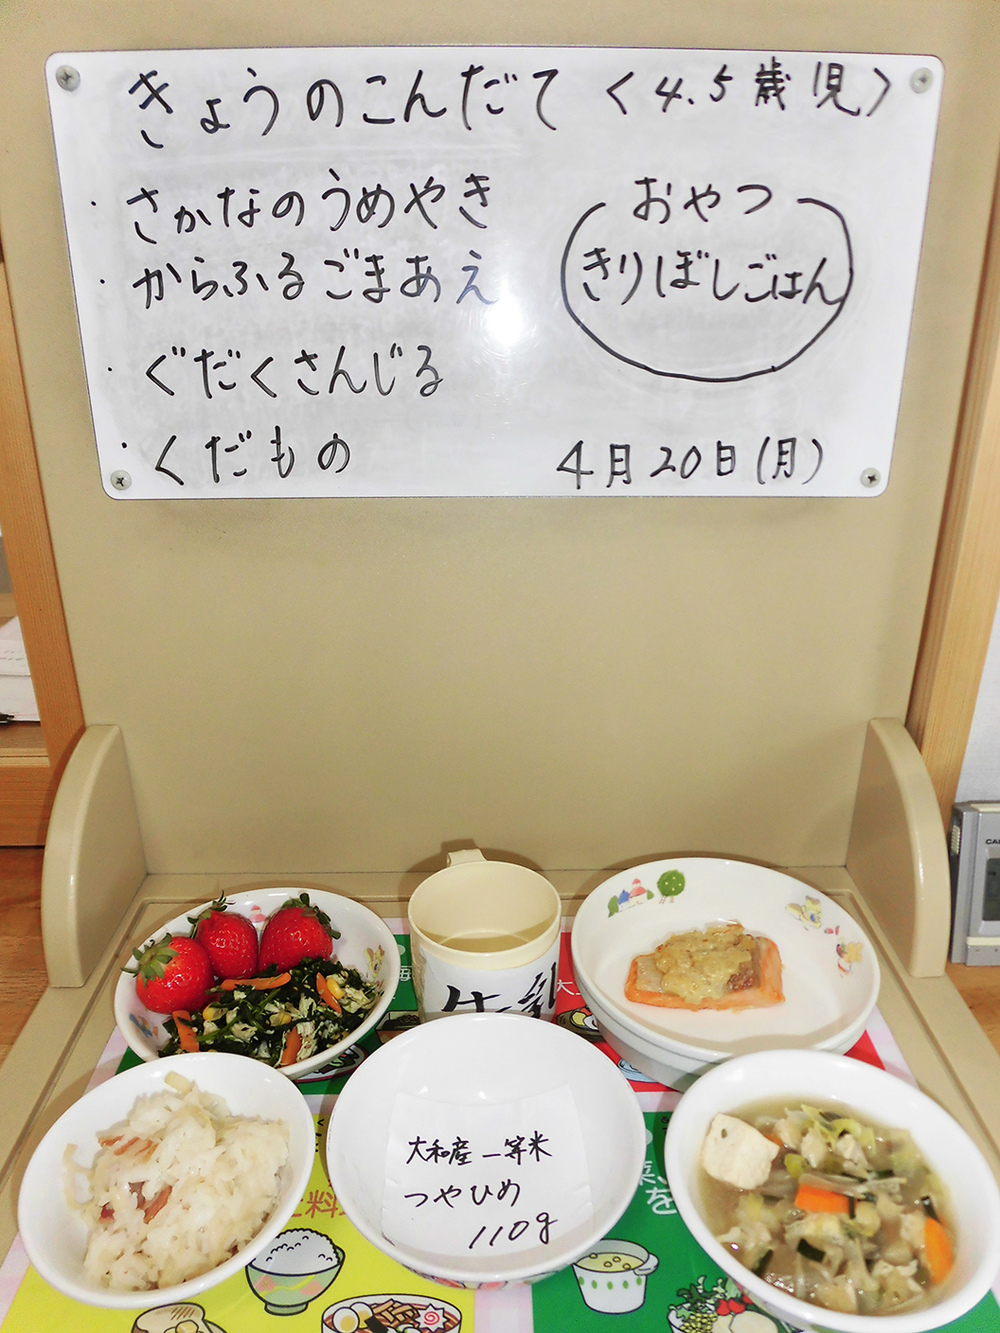 きょうのこんだて〈4.5歳児〉
・さかなのうめやき
・からふるごまあえ
・ぐだくさんじる
・くだもの
おやつ
きりぼしごはん
4月20日(月)
牛乳
大和産一等米
つやひめ
110g